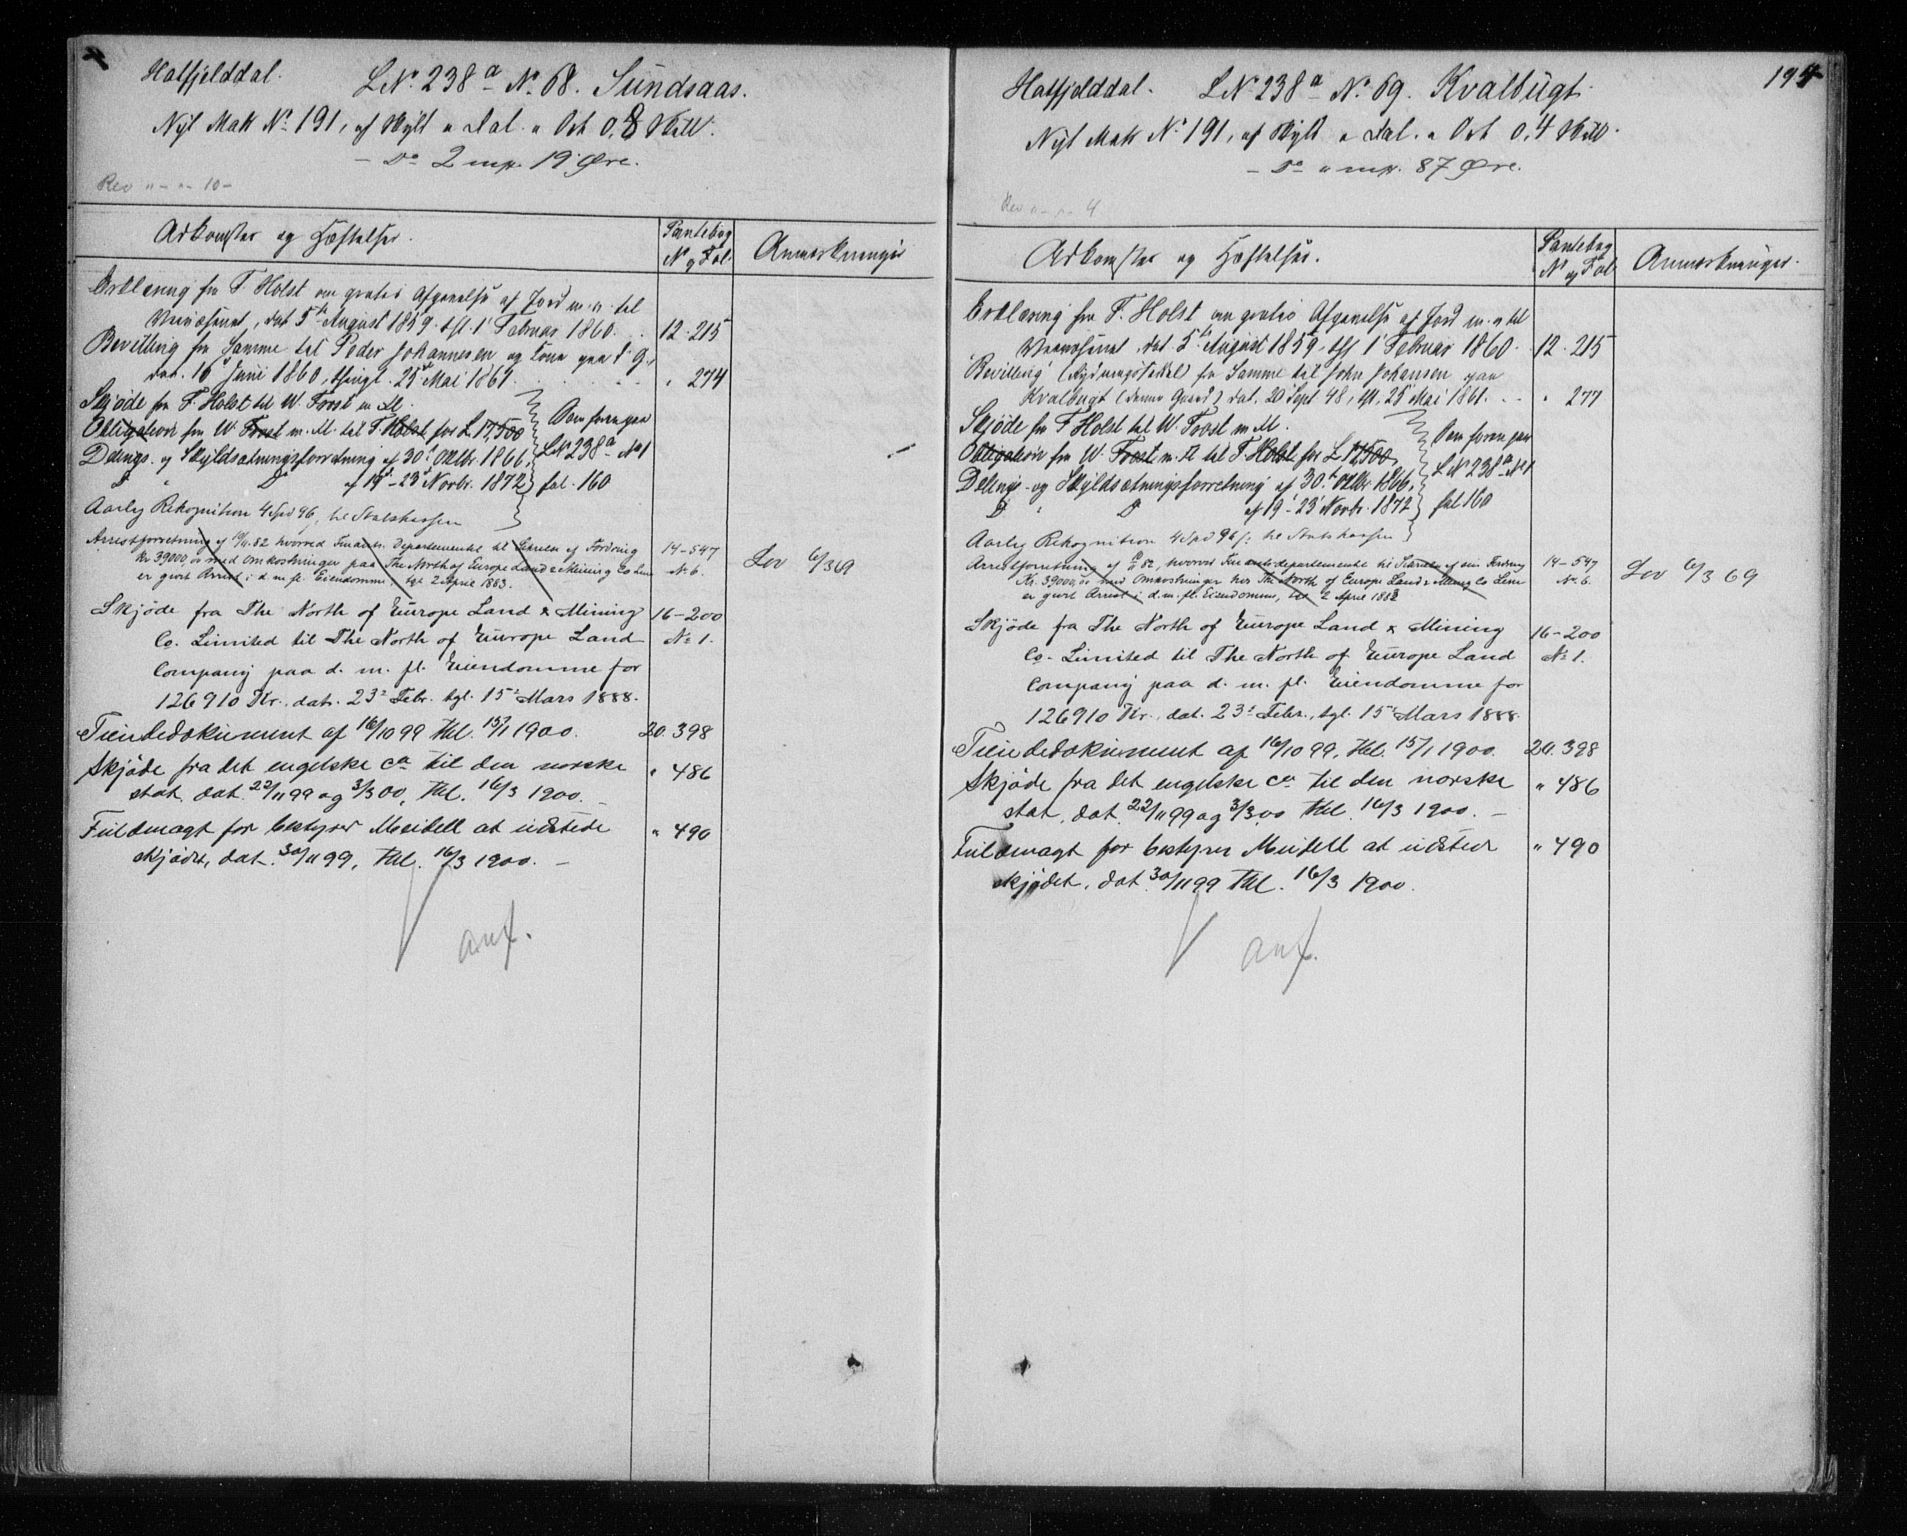 Hatfjelddal. LNo 238a No 68. Sundsaas.
Nyt Matr No 191, af Skyld " Dal. " Ort 0,8 Skill.
— Do 2 mrk. 19 Øre.
Rev " - " - 10 -
Adkomster og Hæftelser.
Pantebog
No og Fol.
Anmærkninger
Erklæring fra F. Holst om gratis Afgivelse af Jord m. v. til
Veivæsenet, dat. 5te August 1859, tgl. 1 Februar 1860. 12. 215
Bevilling fra Samme til Peder Johannesen og Kone paa d. G.,
dat. 16 Juni 1860, thingl. 25de Mai 1861. " 274
Skjøde fra F. Holst til W. Frost m. Fl.
Obligation fra W. Frost m. Fl. til F. Holst for £ 17,500
Delings- og Skyldsætningsforretning af 30te Oktbr. 1866.
Do " Do af 19-23 Novbr. 1872
Som foran paa
LNo 238a No 1
fol. 160
Aarlig Rekognition 4 Spd 96, til Statskassen
Arrestforretning af 10/11.82 hvorved Finants Departementet til Sikrelse af Fordring
Kr 39000,00 med Omkostninger paa The North of Europe Land & Mining Co Lim
er gjort Arrest i d. m. fl. Eiendomme, tgl 2 April 1883.
14-547
No 6.
Lov 6/3 69
Skjöde fra The North of Europe Land & Mining
Co. Limited til The North of Europe Land
Company paa d. m. fl. Eiendomme for
126910 Kr., dat. 23de Febr. tgl. 15de Mars 1888.
16-200
No 1.
Tiendedokument af 16/10 99 thl. 15/1 1900. 20. 398
Skjøde fra det engelske Co til den norske " 486
stat, dat. 22/11 99 og 3/3 00, thl. 16/3 1900. —
Fuldmagt for bestyrer Meidell at udstede " 490
skjødet, dat. 30/11 99, thl. 16/3 1900. —
anf.
194
Hatfjelddal. LNo 238a No 69. Kvalbugt.
Nyt Matr No 191, af Skyld " Dal. " Ort 0,4 Skill.
— Do " mrk. 87 Øre.
Rev " - " - 4
Adkomster og Hæftelser.
Pantebog
No og Fol
Anmærkninger.
Erklæring fra F. Holst om gratis Afgivelse af Jord m. v. til
Veivæsenet, dat. 5te August 1859, tgl. 1 Februar 1860. 12. 215
Bevilling (Rydningsseddel) fra Samme til John Johansen paa
Kvalbugt (denne Gaard) dat. 20 Sept 48, tgl. 25 Mai 1861. " 277
Skjøde fra F. Holst til W. Frost m. Fl.
Obligation fra W. Frost m. Fl til F. Holst for £ 17,500
Delings- og Skyldsætningsforretning af 30te Oktbr. 1866.
Do " Do af 19-23 Novbr. 1872
Som foran paa
LNo 238a No 1
fol 160
Aarlig Rekognition 4 Spd 96 til Statskassen
Arrestforretning af 82, hvorved Finantsdepartementet til Sikrelse af sin Fordring
Kr. 39000,00 med Omkostninger hos The North of Europe Land & Mining Co Lim
er gjort Arrest i d. m. fl. Eiendomme, tgl 2 April 1883
14-547
No 6.
Lov 6/3 69
Skjöde fra The North of Europe Land & Mining
Co. Limited til The North of Europe Land
Company paa d. m. fl. Eiendomme for
126910 Kr., dat. 23de Febr., tgl. 15de Mars 1888.
16-200
No 1.
Tiendedokument af 16/10 99, thl. 15/1 1900. 20. 398
Skjøde fra det engelske Co til den norske " 486
stat, dat. 22/11 99 og 3/3 00 thl. 16/3 1900. —
Fuldmagt for bestyrer Meidell at udstede " 490
skjødet, dat. 30/11 99 thl. 16/3 1900.
anf.